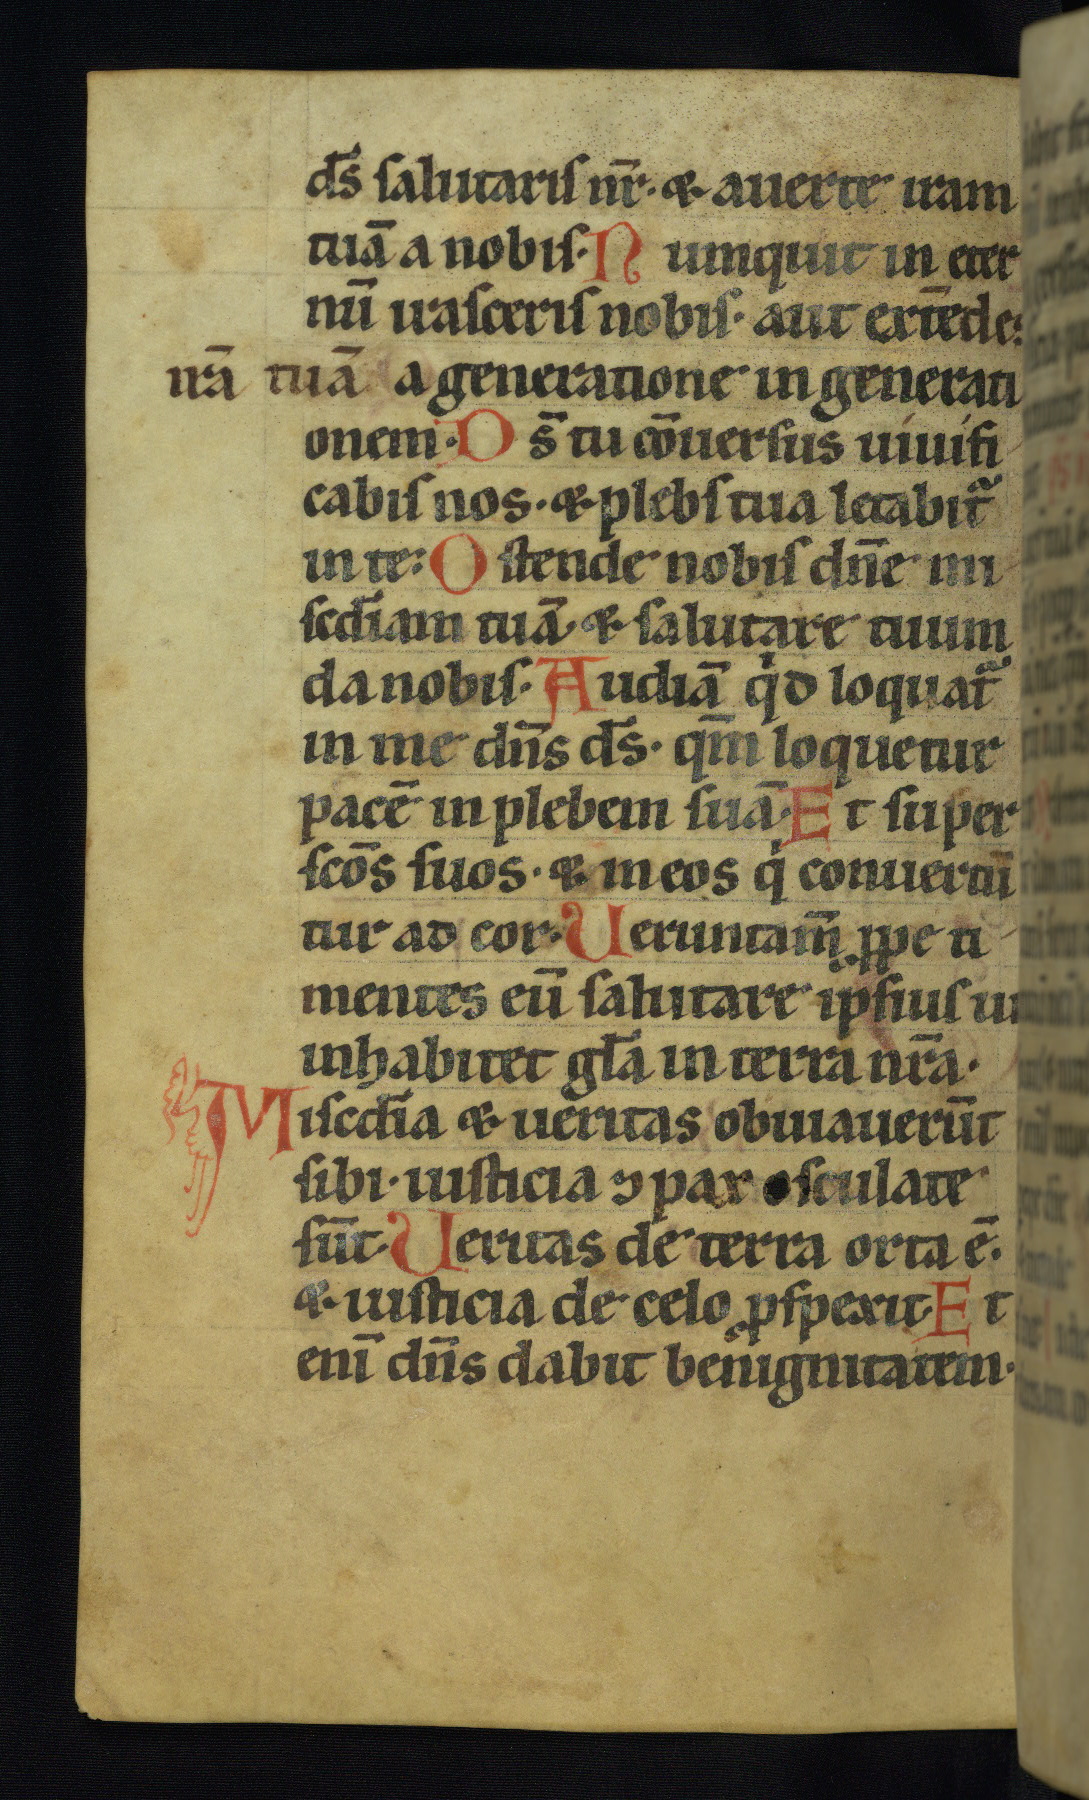 ds̄ salutaris nr̄· & auerte iram
tuā a nobis· Numquit in eter
nū irasceris nobis· aut extēdes
irā tuā a generatione in generati
onem· Ds̄ tu cōuersus uiuifi
cabis nos· & plebs tua letabit᷑
in te: Ostende nobis dn̄e mi
scd̄iam tuā & salutare tuum
da nobis· Audiā qͥd loquat᷑
in me dn̄s ds̄· qm̄ loquetur
pacē in plebem suā· Et super
scōs suos· & in eos qͥ conuertū
tur ad cor· Ueruntam̄ ꝓpe ti
mentes eū salutare ipsius ut
inhabitet gl̄a in terra nr̄a·
Miscd̄ia & ueritas obuiauerūt
sibi· iusticia ⁊ pax osculate
sūt· Ueritas de terra orta ē·
& iusticia de celo ꝓspexit· Et
eni̅ dn̄s dabit benignitatem·